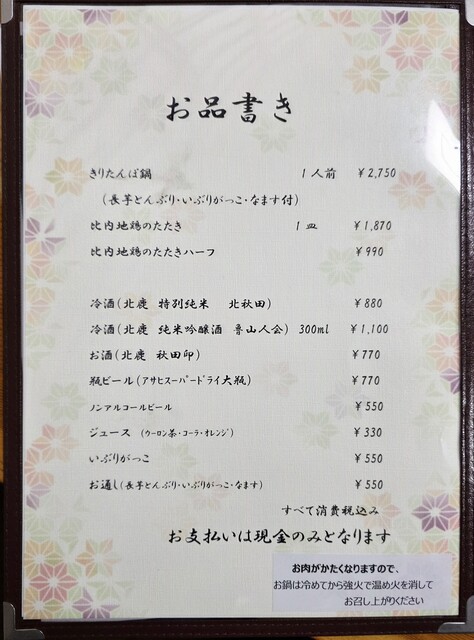 お品書き
きりたんぽ鍋 1人前 ¥2,750
(長芋とんぶり・いぶりがっこ・なます付)
比内地鶏のたたき 1皿 ¥1,870
比内地鶏のたたきハーフ ¥990
冷酒(北鹿 特別純米 北秋田) ¥880
冷酒(北鹿 純米吟醸酒 魯山人会) 300ml ¥1,100
お酒(北鹿 秋田印) ¥770
瓶ビール(アサヒスーパードライ大瓶) ¥770
ノンアルコールビール ¥550
ジュース (ウーロン茶・コーラ・オレンジ) ¥330
いぶりがっこ ¥550
お通し(長芋とんぶり・いぶりがっこ・なます) ¥550
すべて消費税込み
お支払いは現金のみとなります
お肉がかたくなりますので、
お鍋は冷めてから強火で温め火を消して
お召し上がりください